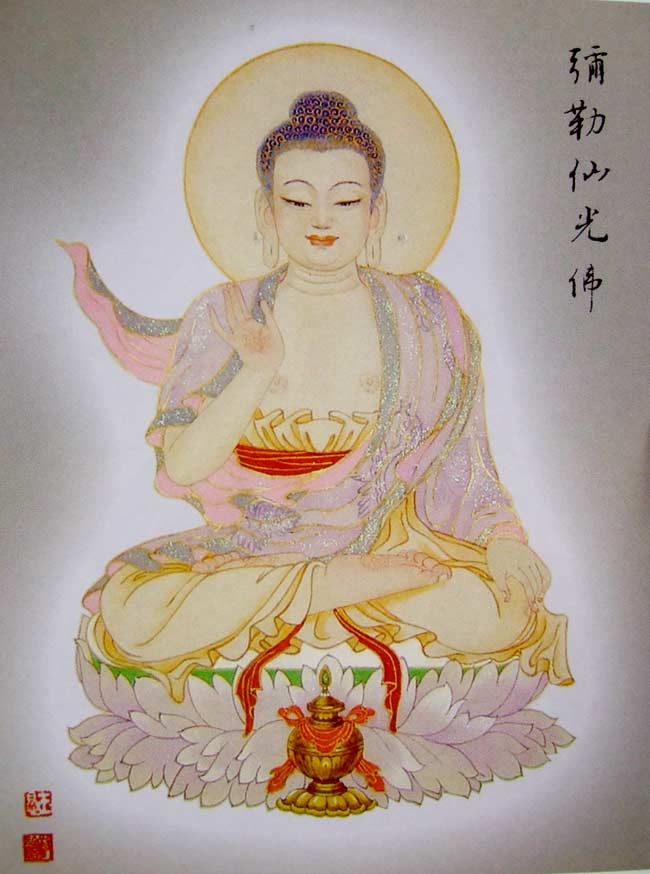 彌勒仙光佛